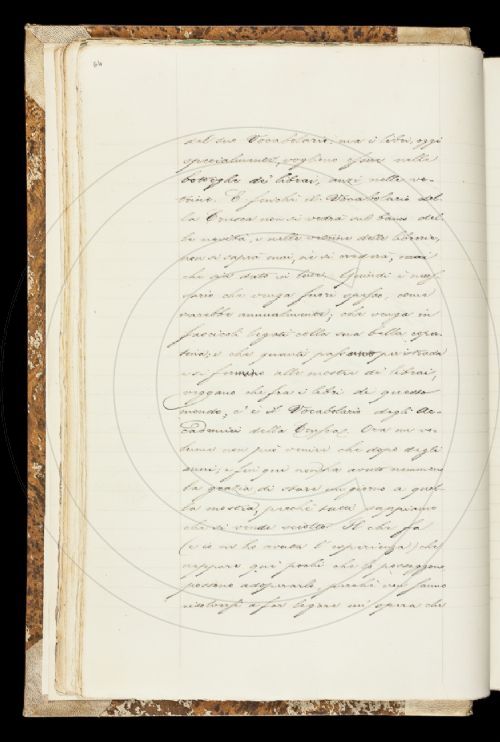 64
dal suo Vocabolario; ma i libri, oggi
specialmente, vogliono essere nelle
botteghe de' librai, anzi nelle ve-
trine. E finchè il Vocabolario del-
la Crusca non si vedrà sul banco del-
le novità, e nelle vetrine delle librerie,
non si saprà mai, nè si crederà, mai
che sia dato in luce. Quindi è neces-
sario che venga fuori spesso, come
sarebbe annualmente; che venga in
fascicoli legati colla sua bella coper-
tina, e che quanti passano per istrada
e si fermino alle mostre de' librai,
veggano che fra i libri di questo
mondo, c'è il Vocabolario degli Ac-
cademici della Crusca. Ora un vo-
lume non può venire che dopo degli
anni; e fin qui non ha avuto nemmeno
la grazia di stare un giorno a quel-
la mostra, perchè tutti sappiamo
che si vende sciolto. Il che fa
(e io ne ho avuta l'esperienza) che
neppure que' pochi che lo posseggono
possano adoperarlo, perchè non sanno
risolversi a far legare un'opera che